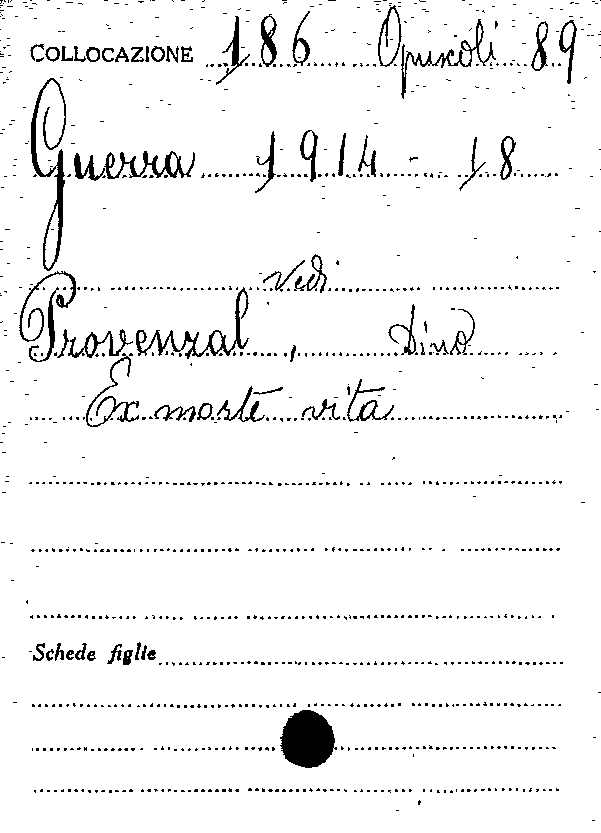 COLLOCAZIONE 186 Opuscoli 89
Guerra 1914-18
Vedi
Provenzal, Dino
Ex morte vita
Schede figlie